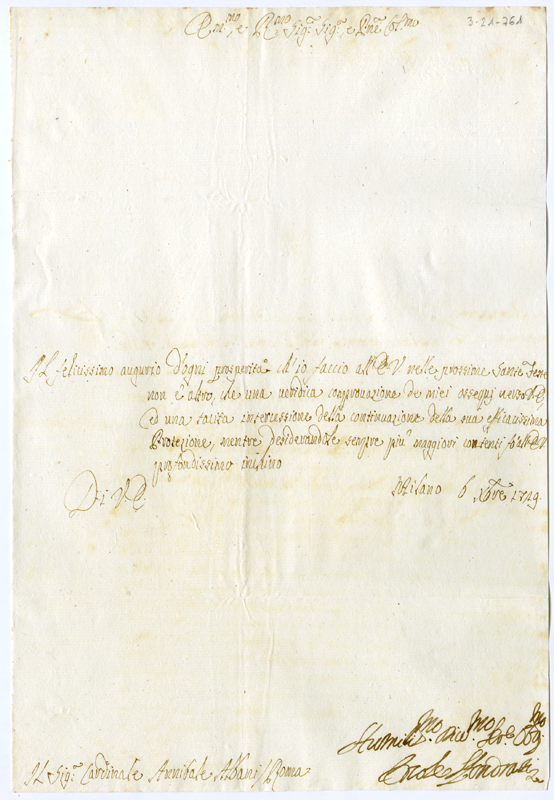 Em.mo, e Rev.mo Sig.r Sig.r, e P.ne Col.mo
3-21-761
Il felicissimo augurio d'ogni prosperità ch'io faccio all'E.V. nelle prossime Sante Feste
non è altro, che una veridica comprovazione de miei ossequj verso V.E,
ed una tacita intercessione della continuazione della sua efficacissima
Protezione, mentre desiderandole sempre più maggiori contenti, fò all'E.V.
profondissimo inchino
Di V.E.
Milano 6 Xbre 1719.
Humilis.mo Div.mo Ser.e Obb.mo
Ercole
Il Sig.r Cardinale Annibale Albani / Roma